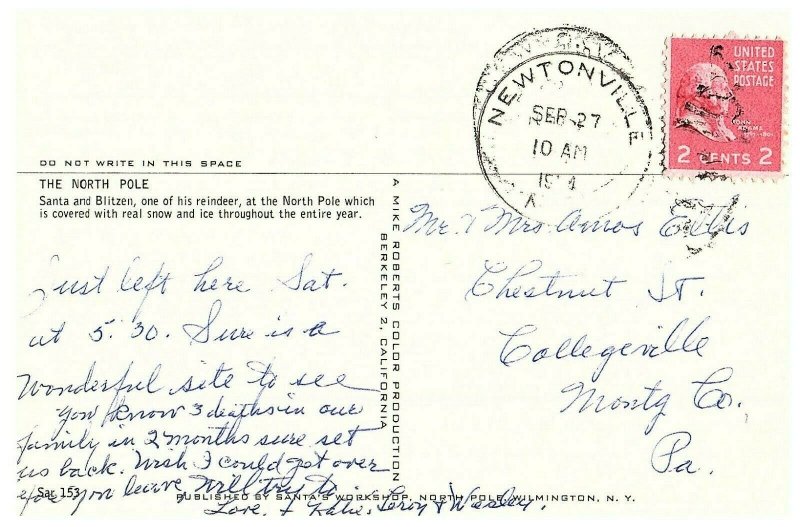 NEWTONVILLE
SEP 27
10 AM
UNITED
STATES
POSTAGE
JOHN
ADAMS
2 CENTS 2
DO NOT WRITE IN THIS SPACE
THE NORTH POLE
Santa and Blitzen, one of his reindeer, at the North Pole which
is covered with real snow and ice throughout the entire year.
Just left here Sat.
at 5:30. Sure is a
wonderful site to see
You know 3 deaths in our
family in 2 months sure set
us back. Wish I could get over
you leave, Will try to.
Love, Katie, Leroy & Wesley.
Sar 153
A MIKE ROBERTS COLOR PRODUCTION
BERKELEY 2, CALIFORNIA
Mr. & Mrs Amos Ellis
Chestnut St.
Collegeville
Montg Co.
Pa.
PUBLISHED BY SANTA'S WORKSHOP, NORTH POLE, WILMINGTON, N. Y.